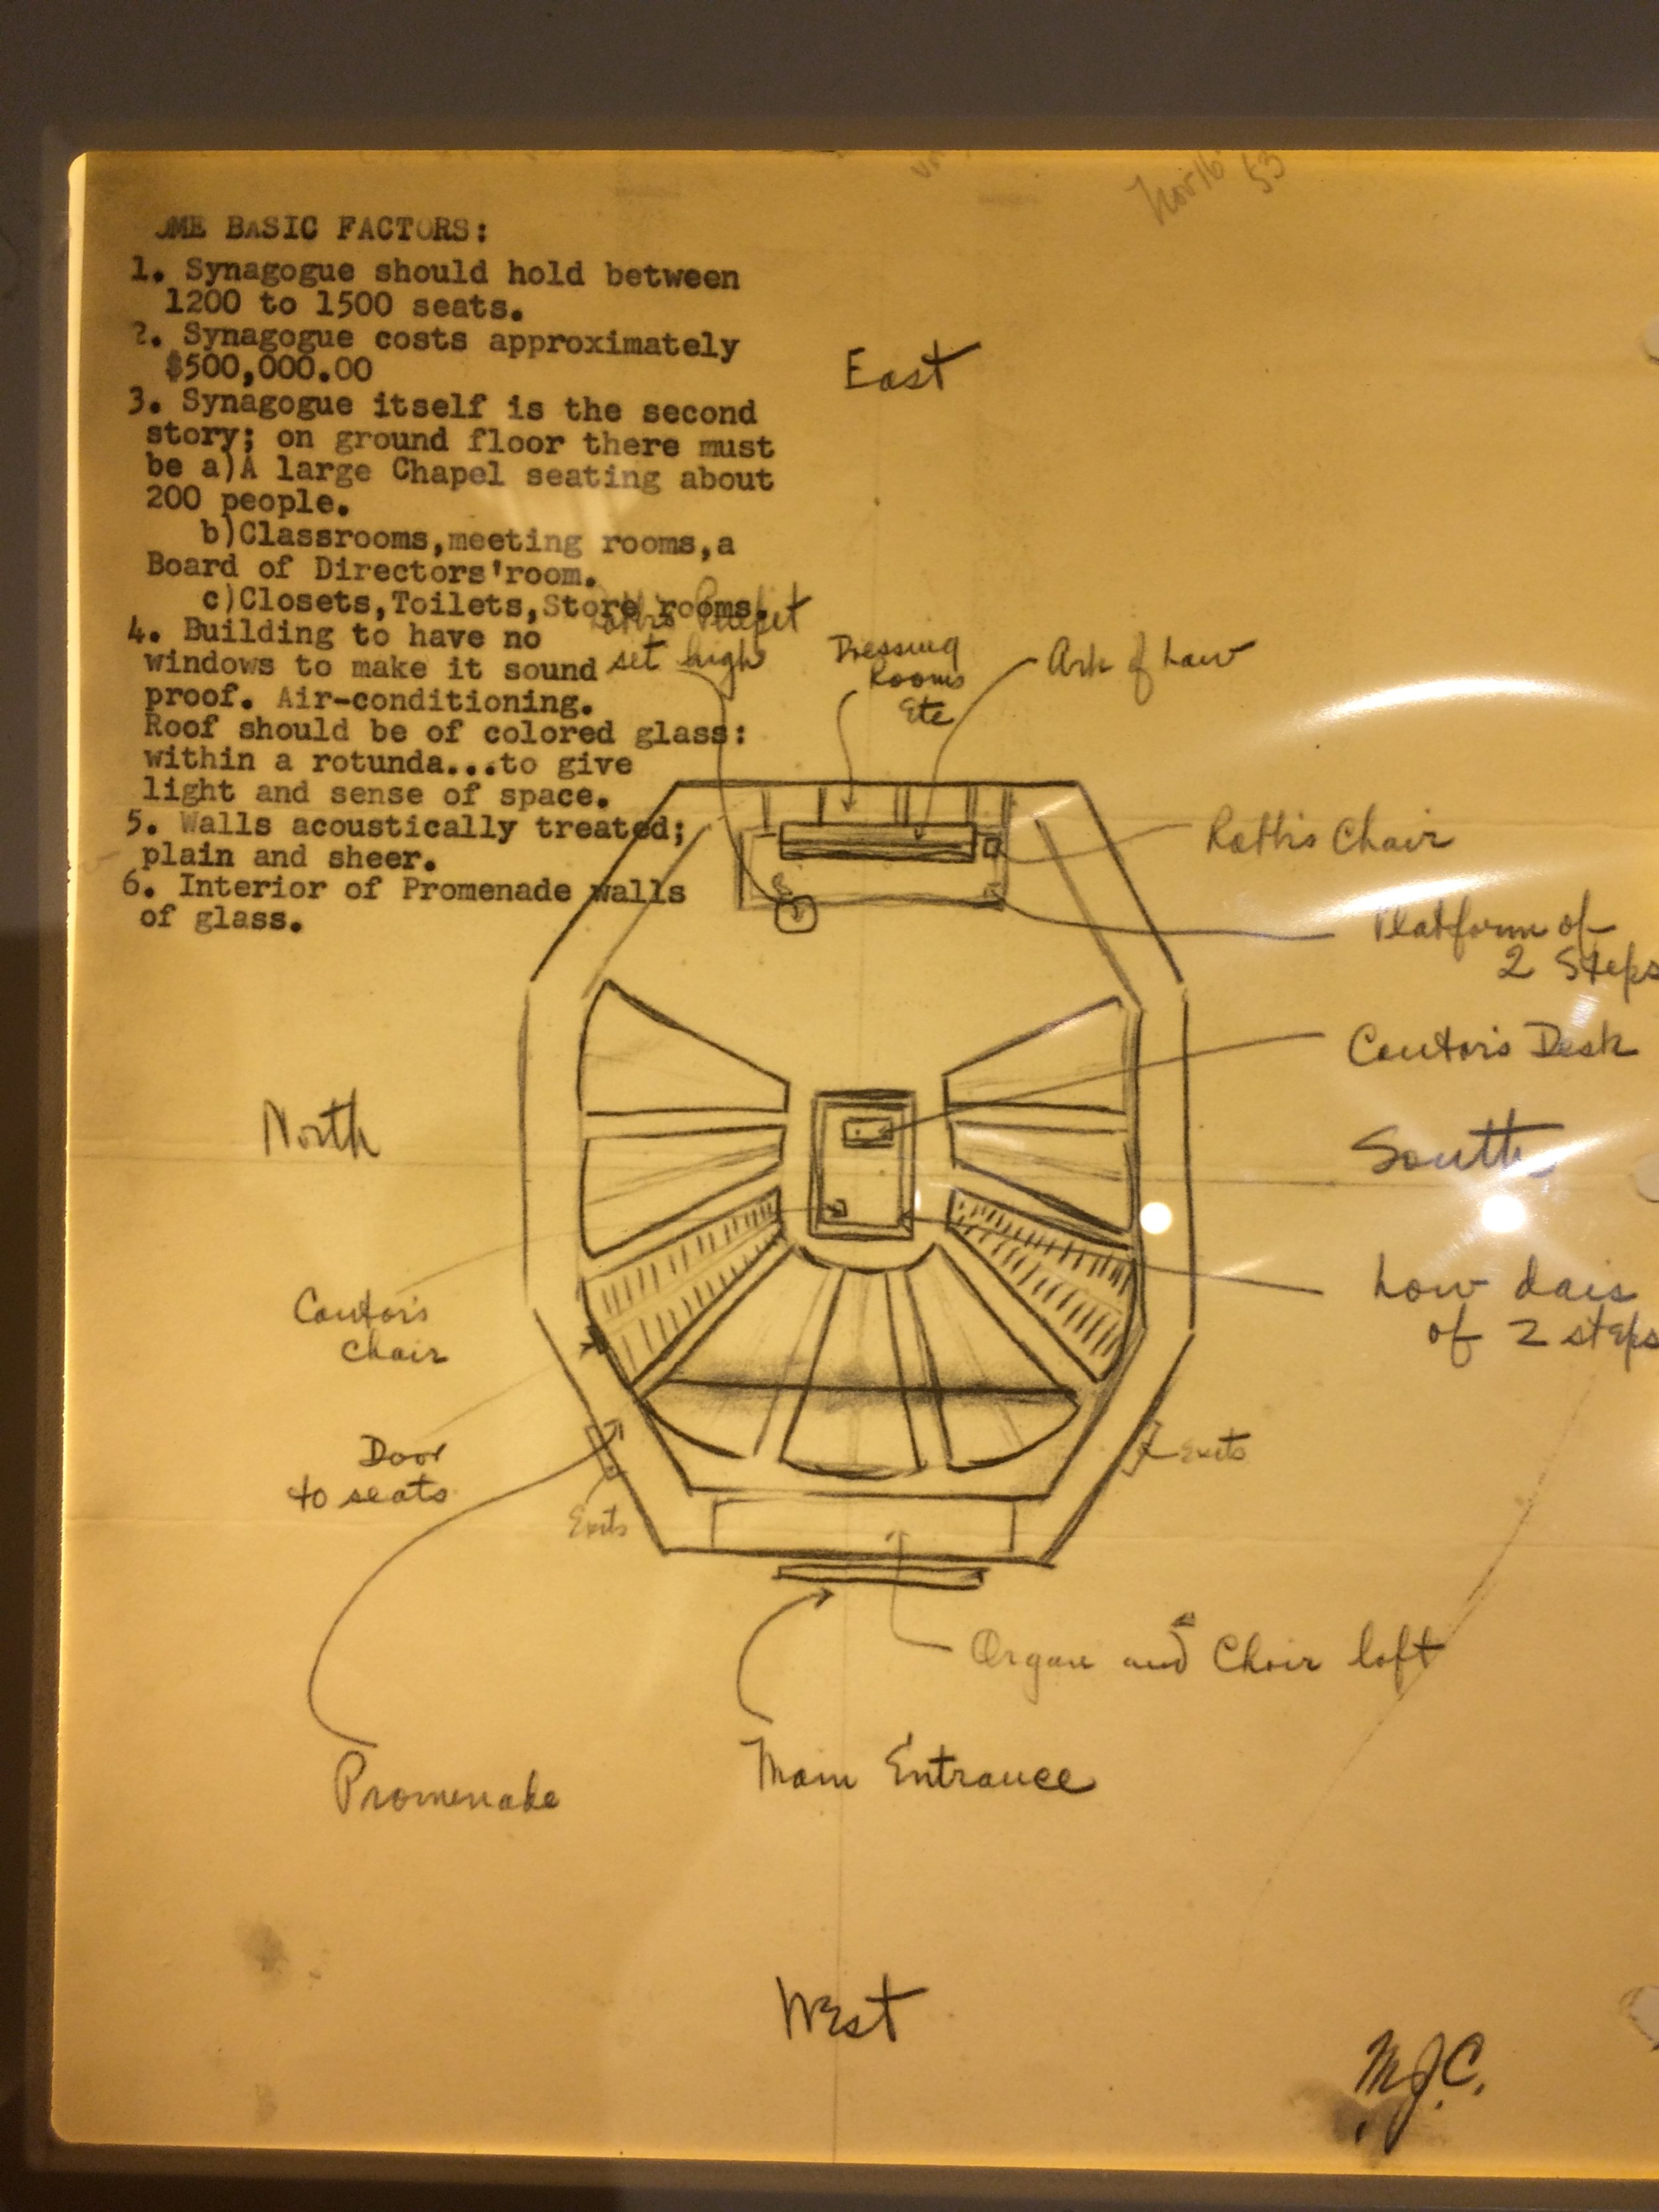 Nov 16 53
OME BASIC FACTORS:
1. Synagogue should hold between
1200 to 1500 seats.
2. Synagogue costs approximately
$500,000.00
3. Synagogue itself is the second
story; on ground floor there must
be a)A large Chapel seating about
200 people.
b)Classrooms,meeting rooms,a
Board of Directors'room.
c)Closets,Toilets,Store rooms.
4. Building to have no
windows to make it sound
proof. Air-conditioning.
Roof should be of colored glass:
within a rotunda...to give
light and sense of space.
5. Walls acoustically treated;
plain and sheer.
6. Interior of Promenade walls
of glass.
East
Rabbi's Pulpit
set high
Dressing
Rooms
Etc
Ark of Law
Rabbi's Chair
Platform of
2 Steps
Cantor's Desk
North
South
Low dais
of 2 steps
Cantor's
Chair
Door
to seats
Exits
Exits
Organ and Choir loft
Promenade
Main Entrance
West
M.J.C.